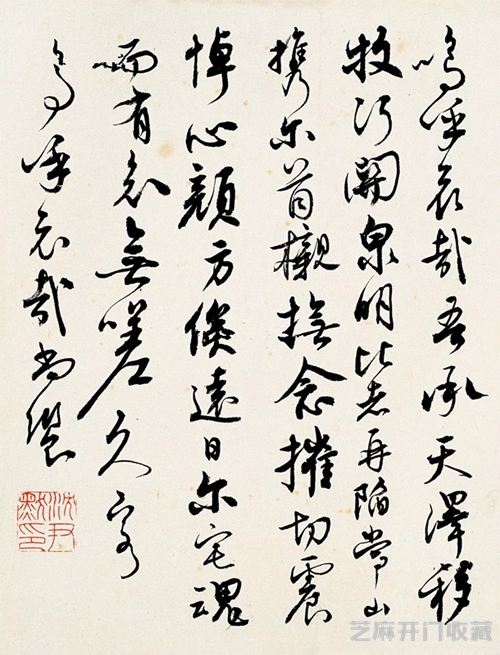 嗚呼哀哉吾承天澤移
牧河關泉明比者再陷常山
携尔首櫬撫念摧切震
悼心顔方俟遠日尔宅魂
而有知無嗟久客
嗚呼哀哉尚饗
沈尹默印
芝麻开门收藏